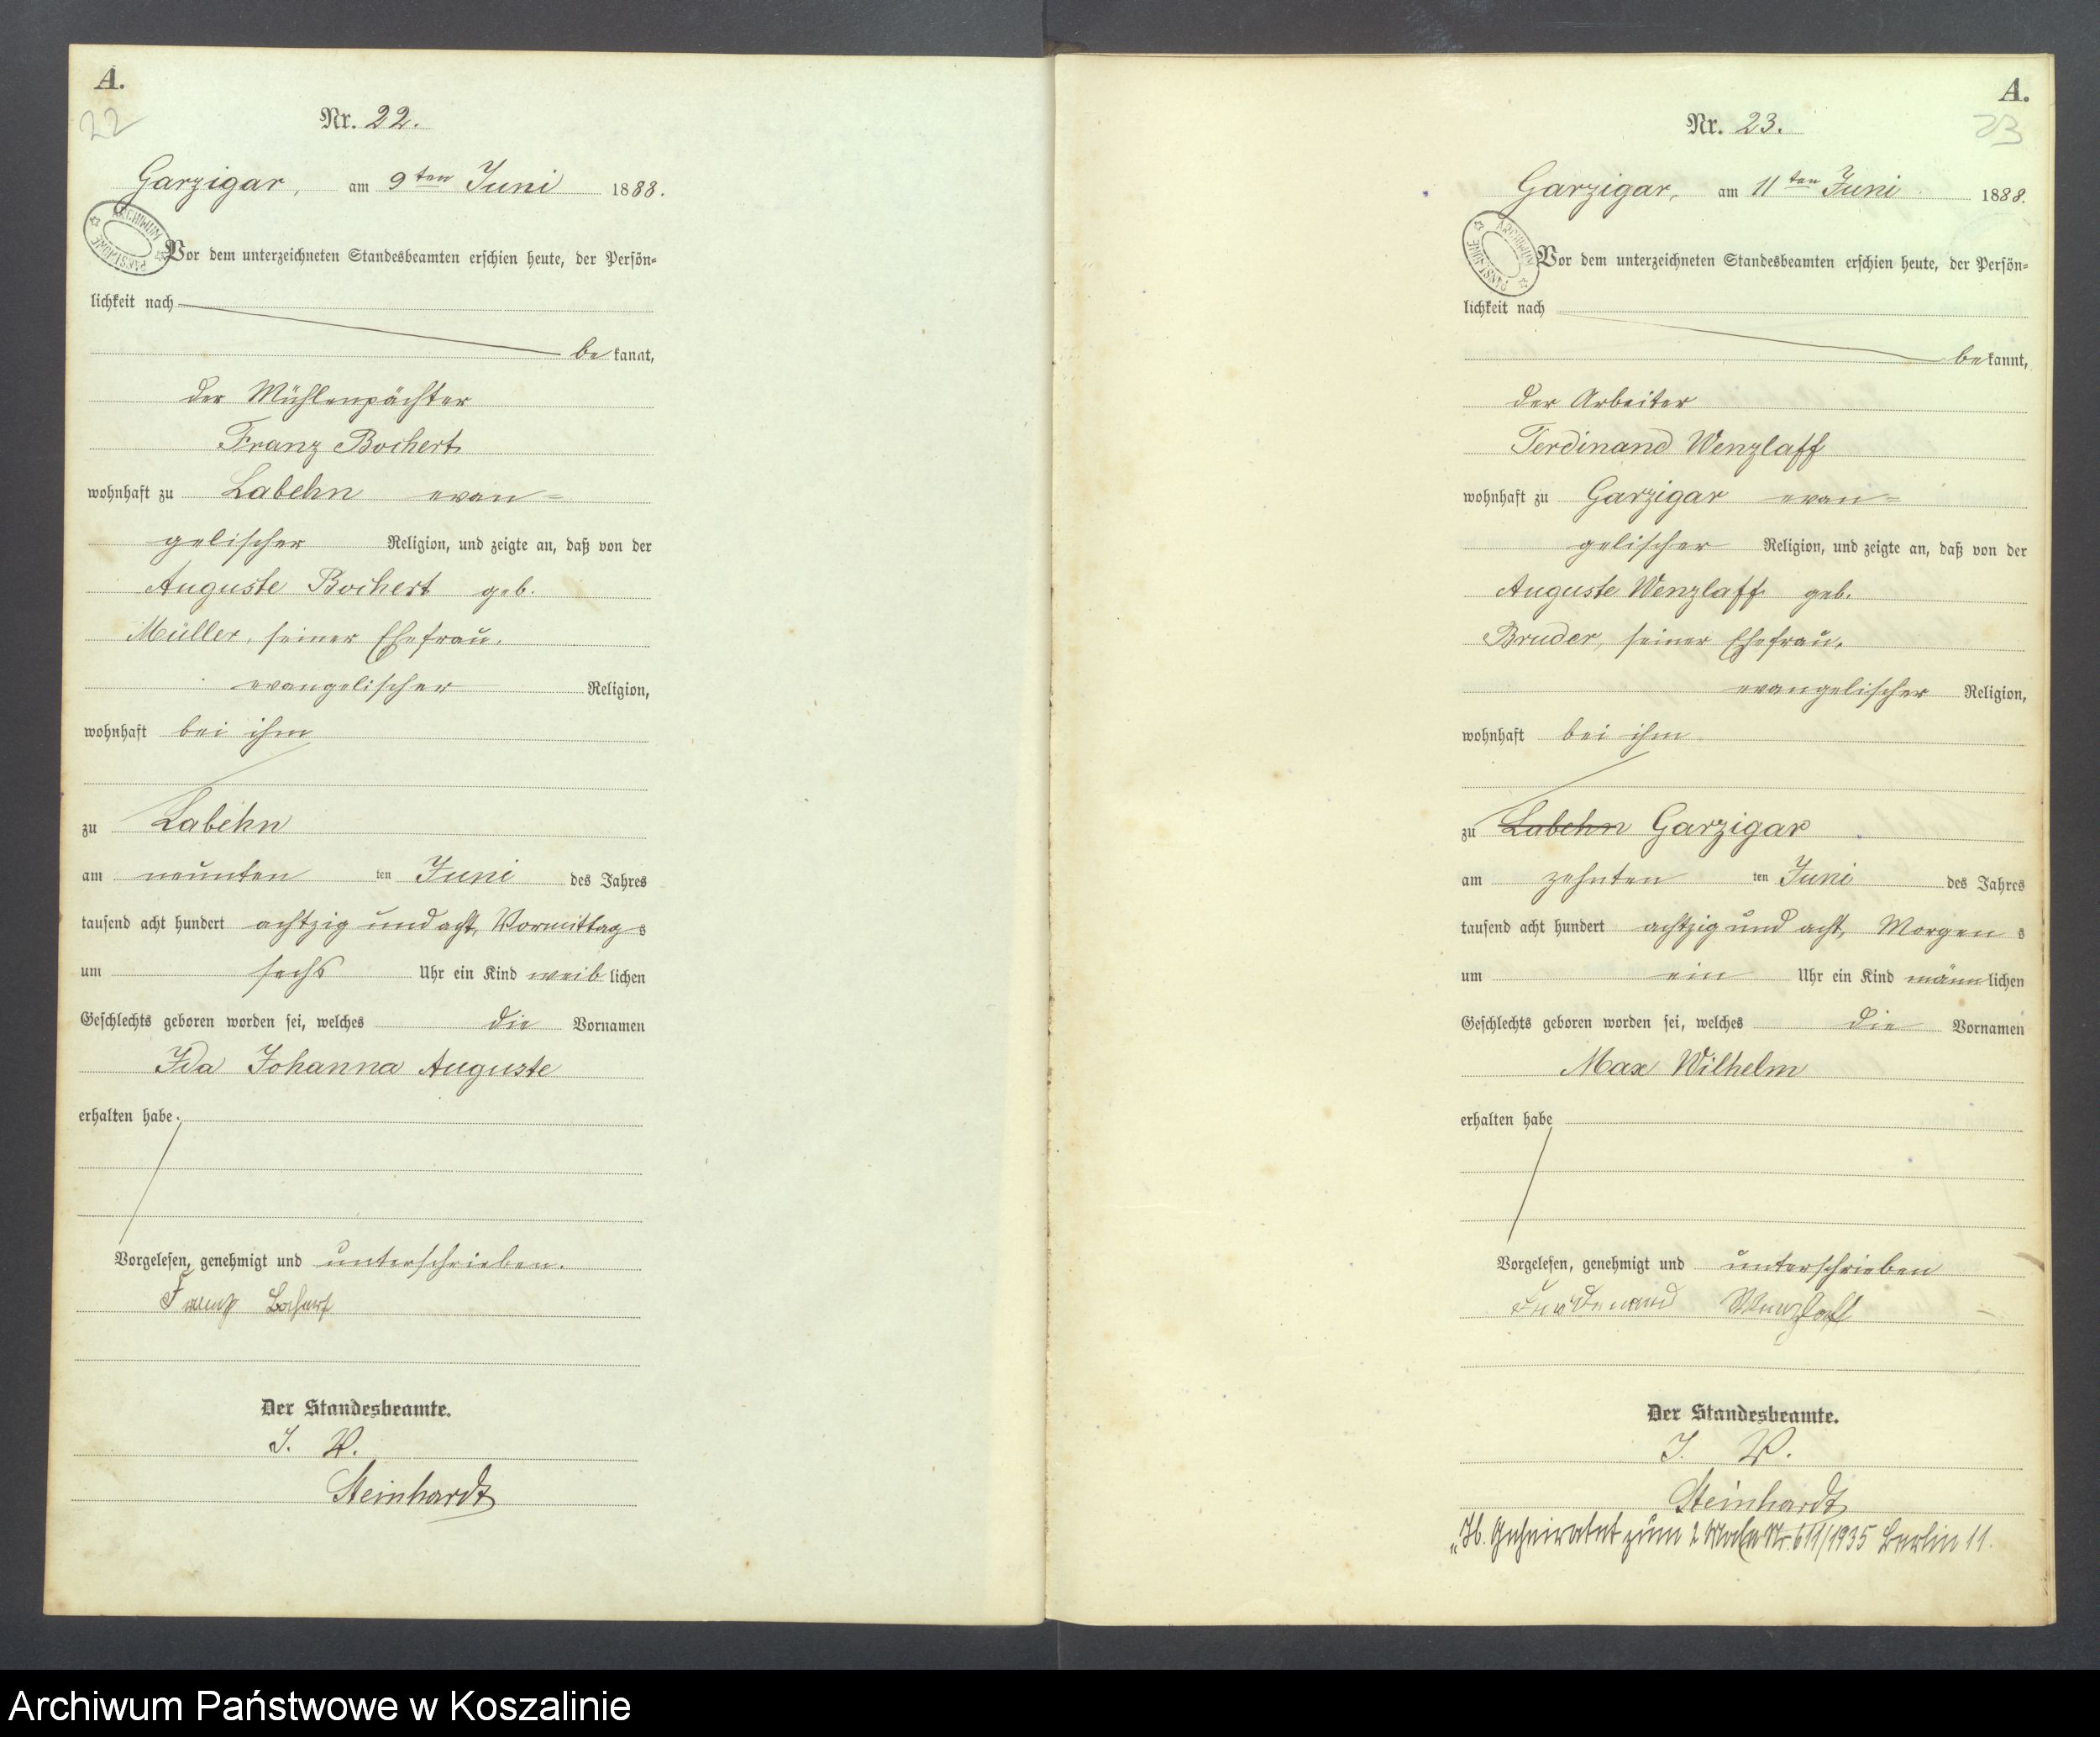 A.
22
Nr. 22.
Garzigar, am 9ten Juni 1888.
Vor dem unterzeichneten Standesbeamten erschien heute, der Persön-
lichkeit nach
bekannt,
der Mühlenpächter
Franz Bochert
wohnhaft zu Labehn evan-
gelischer Religion, und zeigte an, daß von der
Auguste Bochert geb.
Müller, seiner Ehefrau,
evangelischer Religion,
wohnhaft bei ihm
zu Labehn
am neunten ten Juni des Jahres
tausend acht hundert achtzig und acht, Vormittags
um sechs Uhr ein Kind weiblichen
Geschlechts geboren worden sei, welches die Vornamen
Ida Johanna Auguste
erhalten habe.
Vorgelesen, genehmigt und unterschrieben.
Franz Bochert
Der Standesbeamte.
J. V.
Steinhardt
A.
23
Nr. 23.
Garzigar, am 11ten Juni 1888.
Vor dem unterzeichneten Standesbeamten erschien heute, der Persön-
lichkeit nach
bekannt,
der Arbeiter
Ferdinand Wenzlaff
wohnhaft zu Garzigar evan-
gelischer Religion, und zeigte an, daß von der
Auguste Wenzlaff geb.
Bruder, seiner Ehefrau,
evangelischer Religion,
wohnhaft bei ihm
zu Labehn Garzigar
am zehnten ten Juni des Jahres
tausend acht hundert achtzig und acht, Morgens
um ein Uhr ein Kind männlichen
Geschlechts geboren worden sei, welches die Vornamen
Max Wilhelm
erhalten habe
Vorgelesen, genehmigt und unterschrieben
Ferdinand Wenzlaff
Der Standesbeamte.
J. V.
Steinhardt
Geheiratet zum 2 Male Nr. 611/1935 Berlin 11.
Archiwum Państwowe w Koszalinie